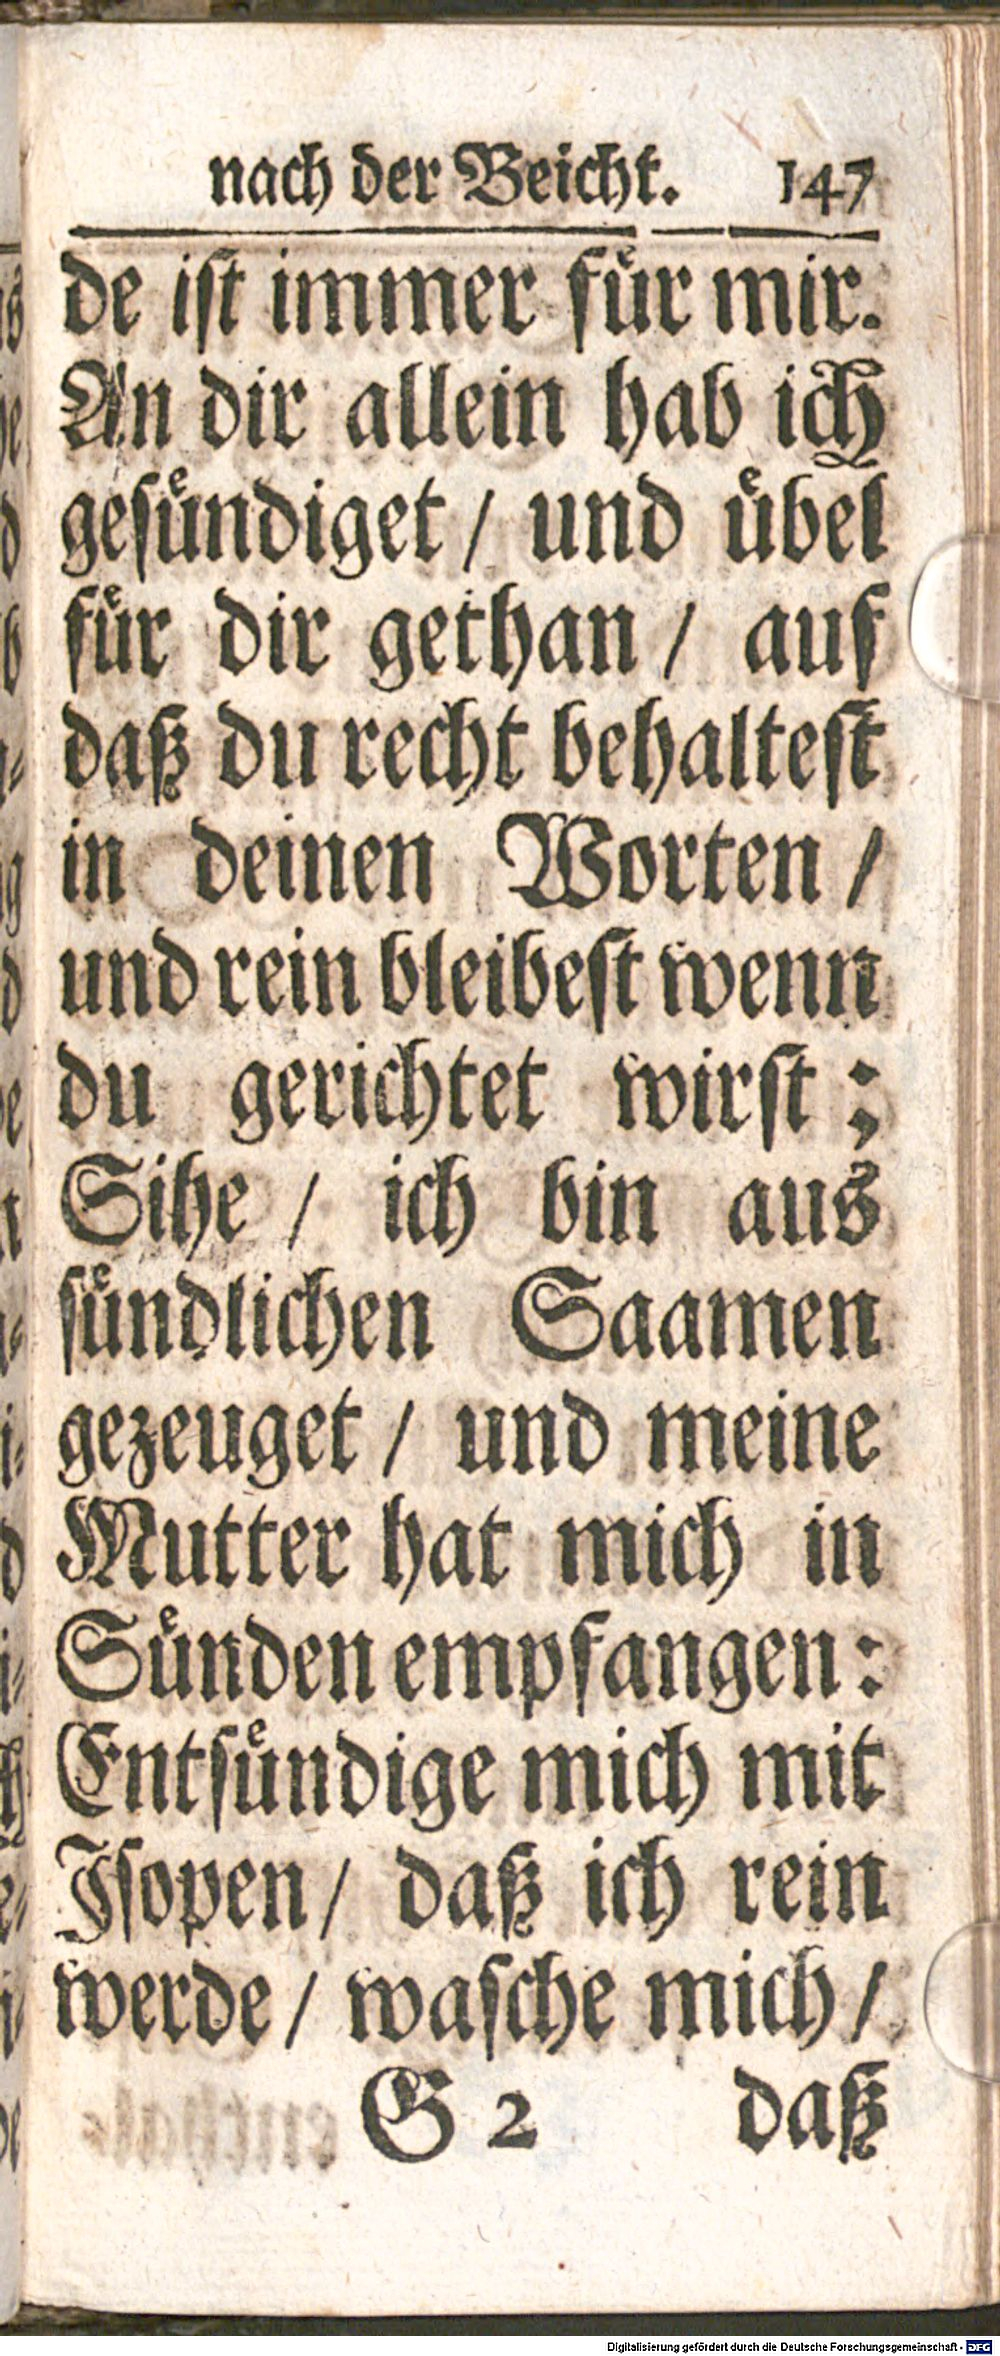 nach der Beicht. 147
de ist immer fuͤr mir.
An dir allein hab ich
gesuͤndiget / und uͤbel
fuͤr dir gethan / auf
daß du recht behaltest
in deinen Worten /
und rein bleibest wenn
du gerichtet wirst ;
Sihe / ich bin aus
suͤndlichen Saamen
gezeuget / und meine
Mutter hat mich in
Suͤnden empfangen :
Entsuͤndige mich mit
Jsopen / daß ich rein
werde / wasche mich /
G 2 daß
Digitalisierung gefördert durch die Deutsche Forschungsgemeinschaft - DFG